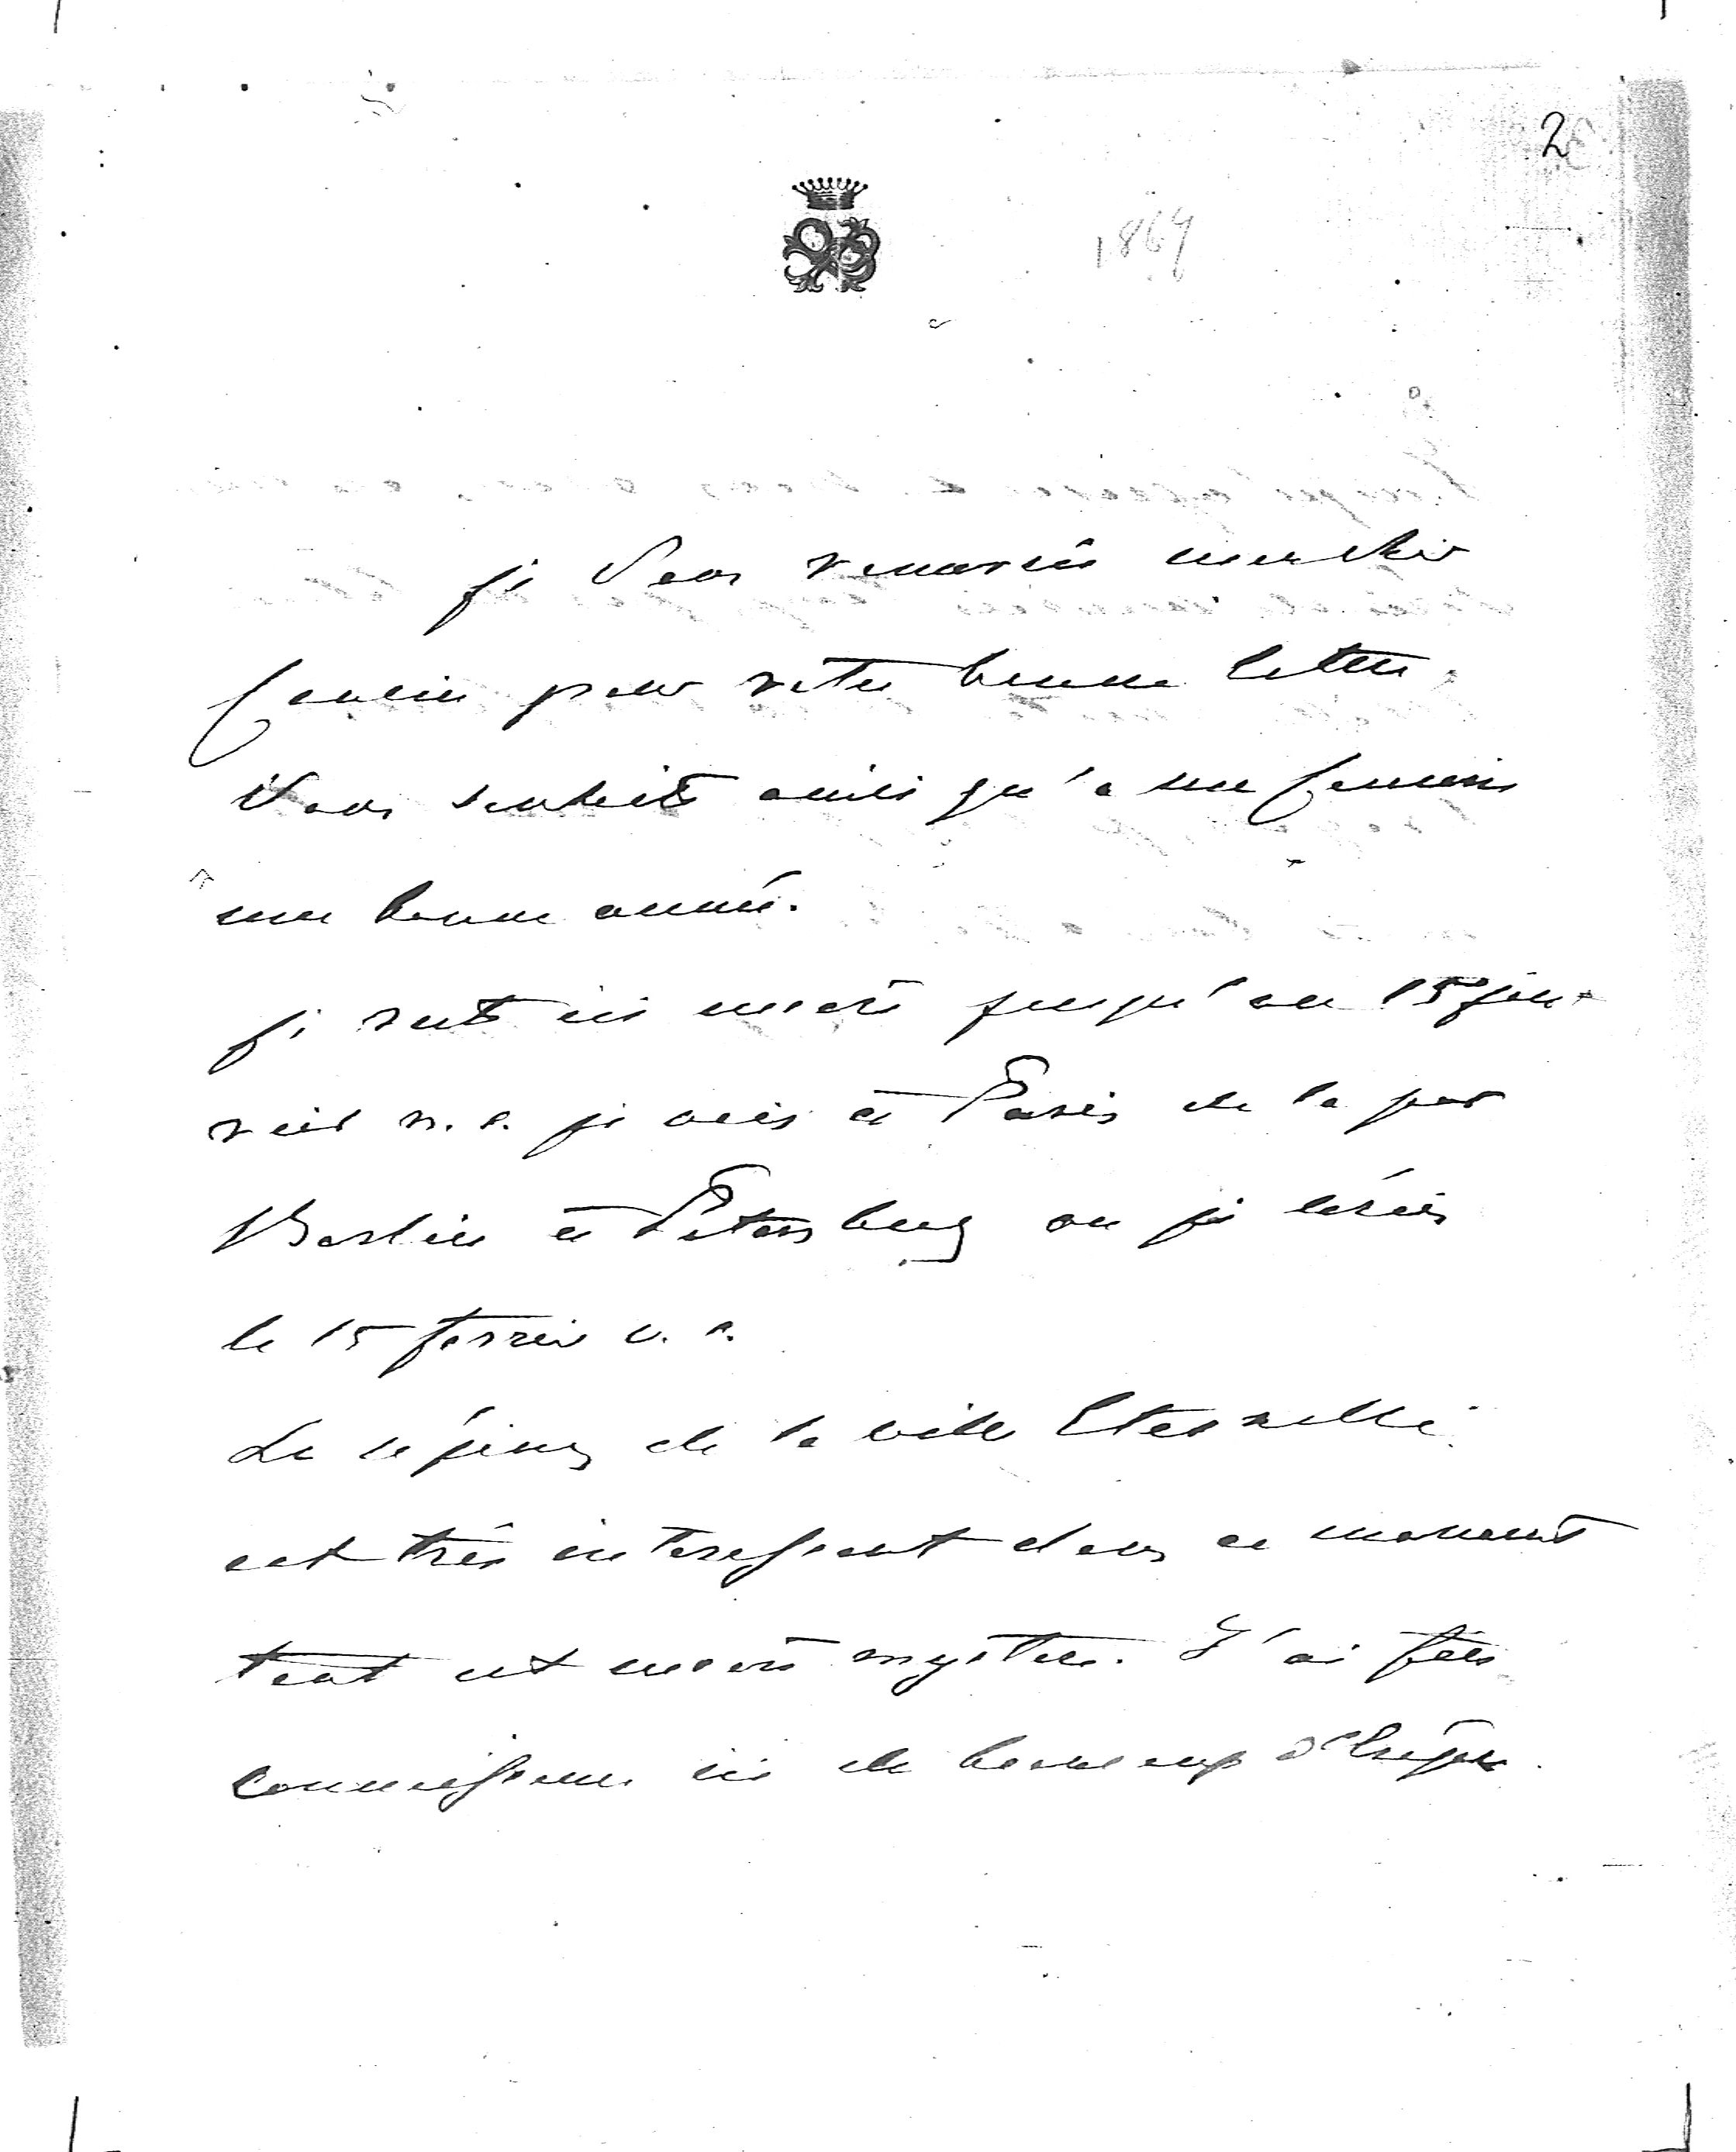 2
1869
je Vous remercie mon cher
Cousin pour votre bonne lettre.
Vous souhaite ainsi qu'a ma Cousine
une bonne année.
je reste ici encore jusqu'au 15 jan-
vier n. s. je vais à Paris de la par
Berlin à Petersbourg ou je serais
le 15 fevrier v. s.
Le séjour de la ville Eternelle
est très interessant dans ce moment
tout est encore mystere. J'ai fais
connaissance ici de beaucoup d'